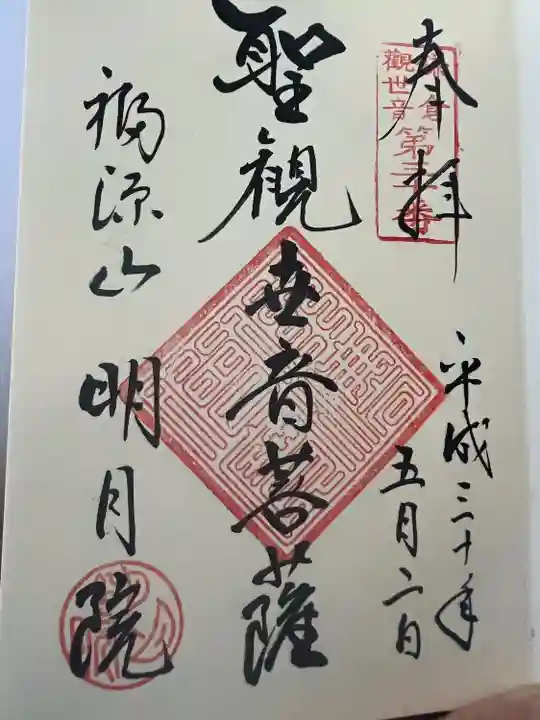 奉拝
鎌倉
觀世音
第三十番
平成三十年
五月二日
聖観世音菩薩
福源山 明月院